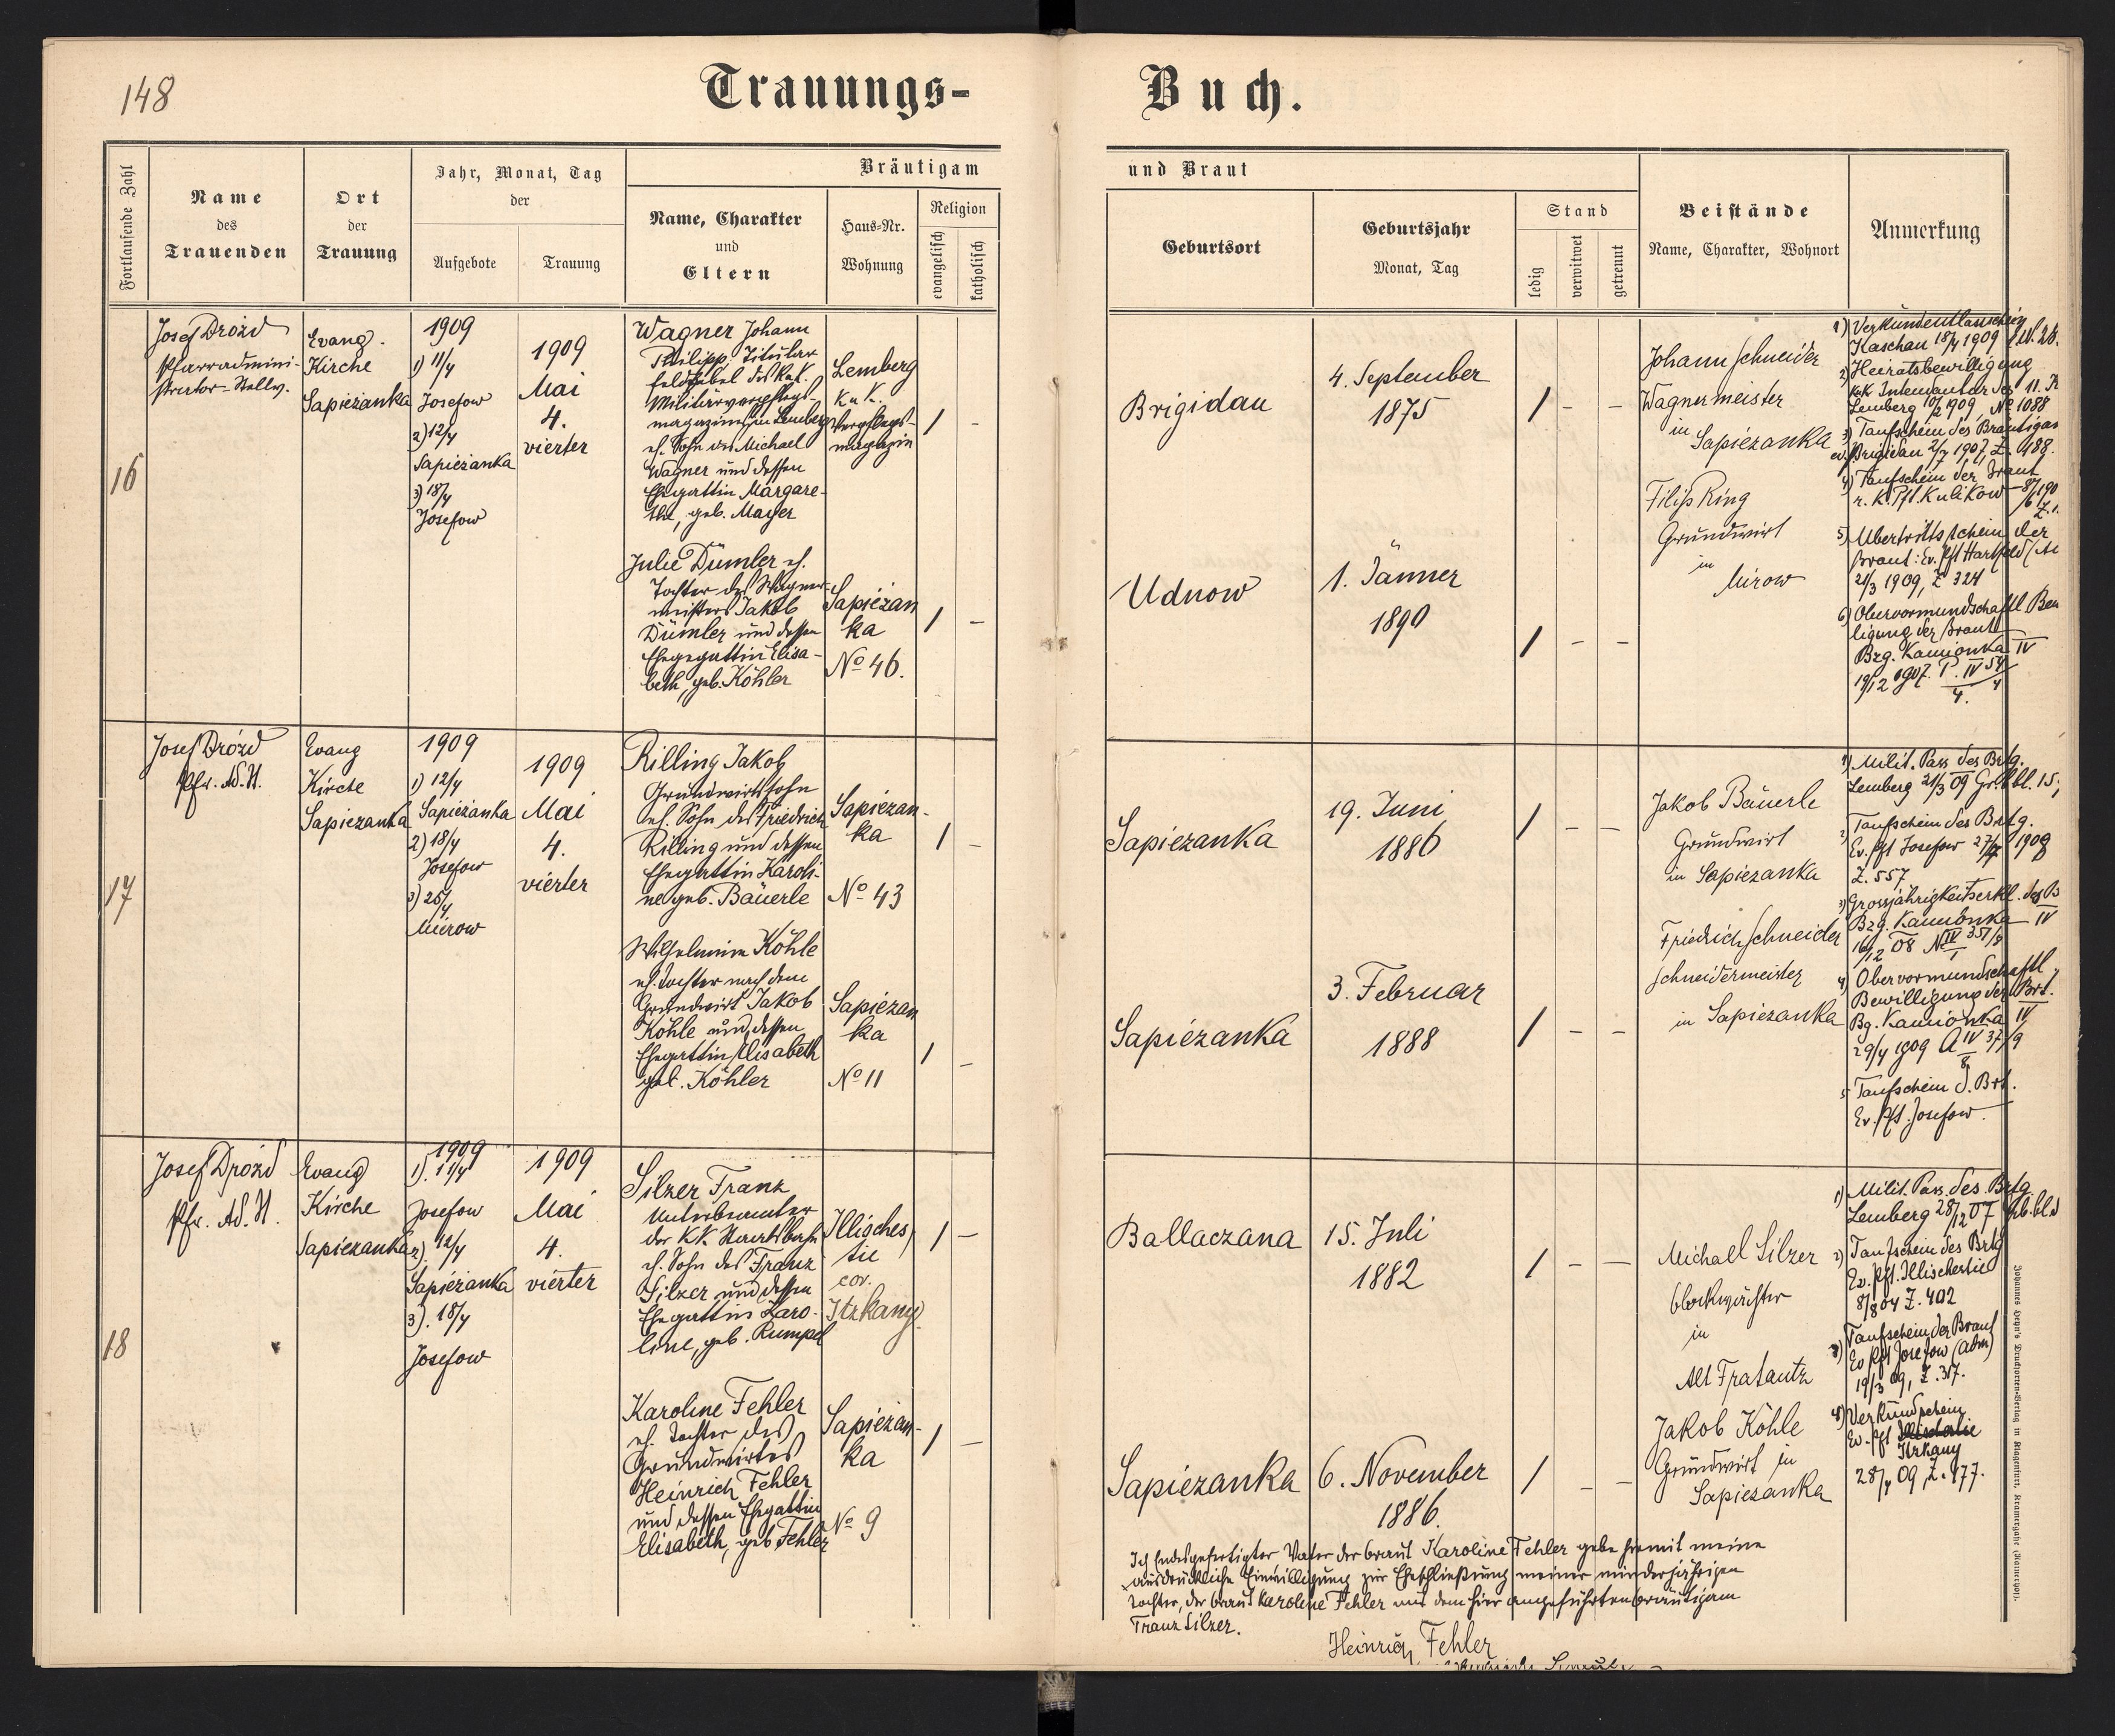 148
Trauungs-
Buch.
Fortlaufende Zahl
Name
des
Trauenden
Ort
der
Trauung
Jahr, Monat, Tag
der
Aufgebote
Trauung
Bräutigam
Name, Charakter
und
Eltern
Haus-Nr.
Wohnung
Religion
evangelisch
katholisch
und Braut
Geburtsort
Geburtsjahr
Monat, Tag
Stand
ledig
verwitwet
getrennt
Beistände
Name, Charakter, Wohnort
Anmerkung
16
Josef Drozd
Pfarradmini-
strator-Stellv.
Evang.
Kirche
Sapiezanka
1909
1) 11/4
Josefow
2) 12/4
Sapiezanka
3) 18/4
Josefow
1909
Mai
4.
vierter
Wagner Johann
Philipp, Titular
feldwebel des k.u.k.
Militärverpflegs-
magazines in Lemberg
eh. Sohn des Michael
Wagner und dessen
Ehegattin Margare-
the, geb. Mayer
Lemberg
k. u. k.
Verpflegs-
magazin
/
-
Julie Dümler eh.
Tochter des Wagner-
meisters Jakob
Dümler und dessen
Ehegattin Elisa-
beth, geb. Köhler
Sapiezan
ka
No 46.
/
-
Brigidau
4. September
1875
/ - -
Udnow
1. Jänner
1890
/ - -
Johann Schneider
Wagnermeister
in Sapiezanka
Filip Ring
Grundwirt
in
Mirow
1) Verkündentlasschein
Kaschau 18/4 1909
2) Heiratsbewilligung
k.u.k. Intendantur des 11. K
Lemberg 10/2 1909, No 1088
3) Taufschein des Bräutigam
ev. Brigidau 2/7 1907, Z. 488.
4) Taufschein der Braut
r. k. Pf. Kulikow
5) Übertrittsschein der
Braut: Ev. Pft Hartfeld
21/3 1909, Z 324
6) Obervormundschaftl Bew
ligung der Braut
Bzg. Kamionka IV
19/12 1907. P. IV 54/4
4.
17
Josef Drozd
Pfr. Ad. St.
Evang
Kirche
Sapiezanka
1909
1) 12/4
Sapiezanka
2) 18/4
Josefow
3) 25/4
Mirow
1909
Mai
4.
vierter
Rilling Jakob
Grundwirtssohn
eh. Sohn des Friedrich
Rilling und dessen
Ehegattin Karoli-
ne geb. Bäuerle
Sapiezan-
ka
No 43
/
-
Wilhelmine Köhle
eh. Tochter nach dem
Grundwirt Jakob
Köhle und dessen
Ehegattin Elisabeth
geb. Köhler
Sapiezan
ka
No 11
/
-
Sapiezanka
19. Juni
1886
/ - -
Sapiezanka
3. Februar
1888
/ - -
Jakob Bäuerle
Grundwirt
in Sapiezanka
Friedrich Schneider
Schneidermeister
in Sapiezanka
1) Milit. Pass des Brtg.
Lemberg 21/3 09 Gr.bbl. 15,
2) Taufschein des Brtg.
Ev. Pft Josefow
Z. 557
3) Grossjährigkeitserkl. des B
Bzg. Kamionka IV
16/12 08
4) Obervormundschaftl.
Bewilligung der Brt.
Bg. Kamionka IV
29/4 1909 A IV 37/9
8
5 Taufschein d. Brt.
Ev. Pft. Josefow.
18
Josef Drozd
Pfr. Ad. St.
Evang
Kirche
Sapiezanka
1909
1). 11/4
Josefow
2) 12/4
Sapiezanka
3). 18/4
Josefow
1909
Mai
4.
vierter
Silzer Franz
Unterbeamter
der KK. Staatsbahn
eh. Sohn des Franz
Silzer und dessen
Ehegattin Karo-
line, geb. Rumpel
Illisches
tie
Itzkany
/
-
Karoline Fehler
eh. Tochter des
Grundwirtes
Heinrich Fehler
und dessen Ehegattin
Elisabeth, geb Fehler
Sapiezan-
ka
No 9
/
-
Ballaczana
15. Juli
1882
/ - -
Sapiezanka
6. November
1886.
/ - -
Michael Silzer
Blockwächter
in
Alt Fratautz
Jakob Köhle
Grundwirt in
Sapiezanka
1) Milit. Pass des Brtg
Lemberg 28/12 07
2) Taufschein des Brtg
Ev. Pft. Illischestie
8/8 04 Z. 402
3) Taufschein der Braut
Ev Pft Josefow (adm)
19/3 09, Z. 317.
4) Verkündschein
Ev. Pft Illischestie
Itzkany
28/4 09, Z. 177.
Ich Endesgefertigter, Vater der Braut Karoline Fehler gebe hiemit meine
ausdrückliche Einwilligung zur Eheschließung meiner minderjährigen
Tochter, der Braut Karoline Fehler mit dem hier angeführten Bräutigam
Franz Silzer.
Heinrich Fehler
Johannes Heyn's Drucksorten-Verlag in Klagenfurt, Kramergasse (Kamerhof).